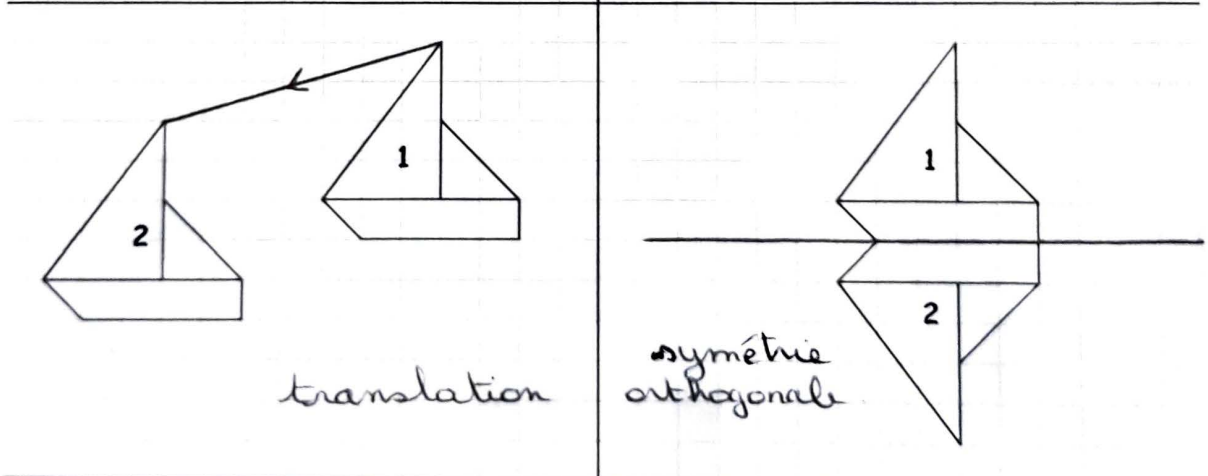 1
2
translation
1
2
symétrie
orthogonale